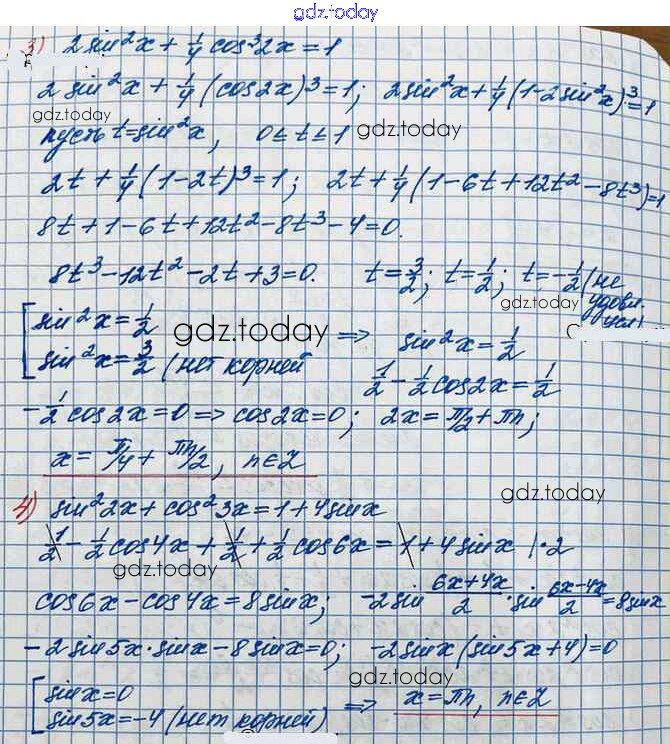 gdz.today
3) 2sin²x + 1/4 cos³2x = 1
2sin²x + 1/4 (cos2x)³ = 1; 2sin²x + 1/4 (1-2sin²x)³ = 1
gdz.today
пусть t = sin²x, 0 ≤ t ≤ 1 gdz.today
2t + 1/4 (1-2t)³ = 1; 2t + 1/4 (1-6t+12t²-8t³) = 1
8t + 1 - 6t + 12t² - 8t³ - 4 = 0.
8t³ - 12t² - 2t + 3 = 0. t = 3/2; t = 1/2; t = -1/2 (не удовл. усл)
gdz.today
[ sin²x = 1/2 gdz.today ⇒ sin²x = 1/2
sin²x = 3/2 (нет корней
1/2 - 1/2 cos2x = 1/2
-1/2 cos2x = 0 ⇒ cos2x = 0; 2x = π/2 + πn;
x = π/4 + πn/2, n ∈ Z
gdz.today
4) sin²2x + cos²3x = 1 + 4sinx
1/2 - 1/2 cos4x + 1/2 + 1/2 cos6x = 1 + 4sinx | ·2
gdz.today
cos6x - cos4x = 8sinx; -2sin (6x+4x)/2 · sin (6x-4x)/2 = 8sinx
-2sin5x·sinx - 8sinx = 0; -2sinx(sin5x+4) = 0
gdz.today
[ sinx = 0 ⇒ x = πn, n ∈ Z
sin5x = -4 (нет корней)